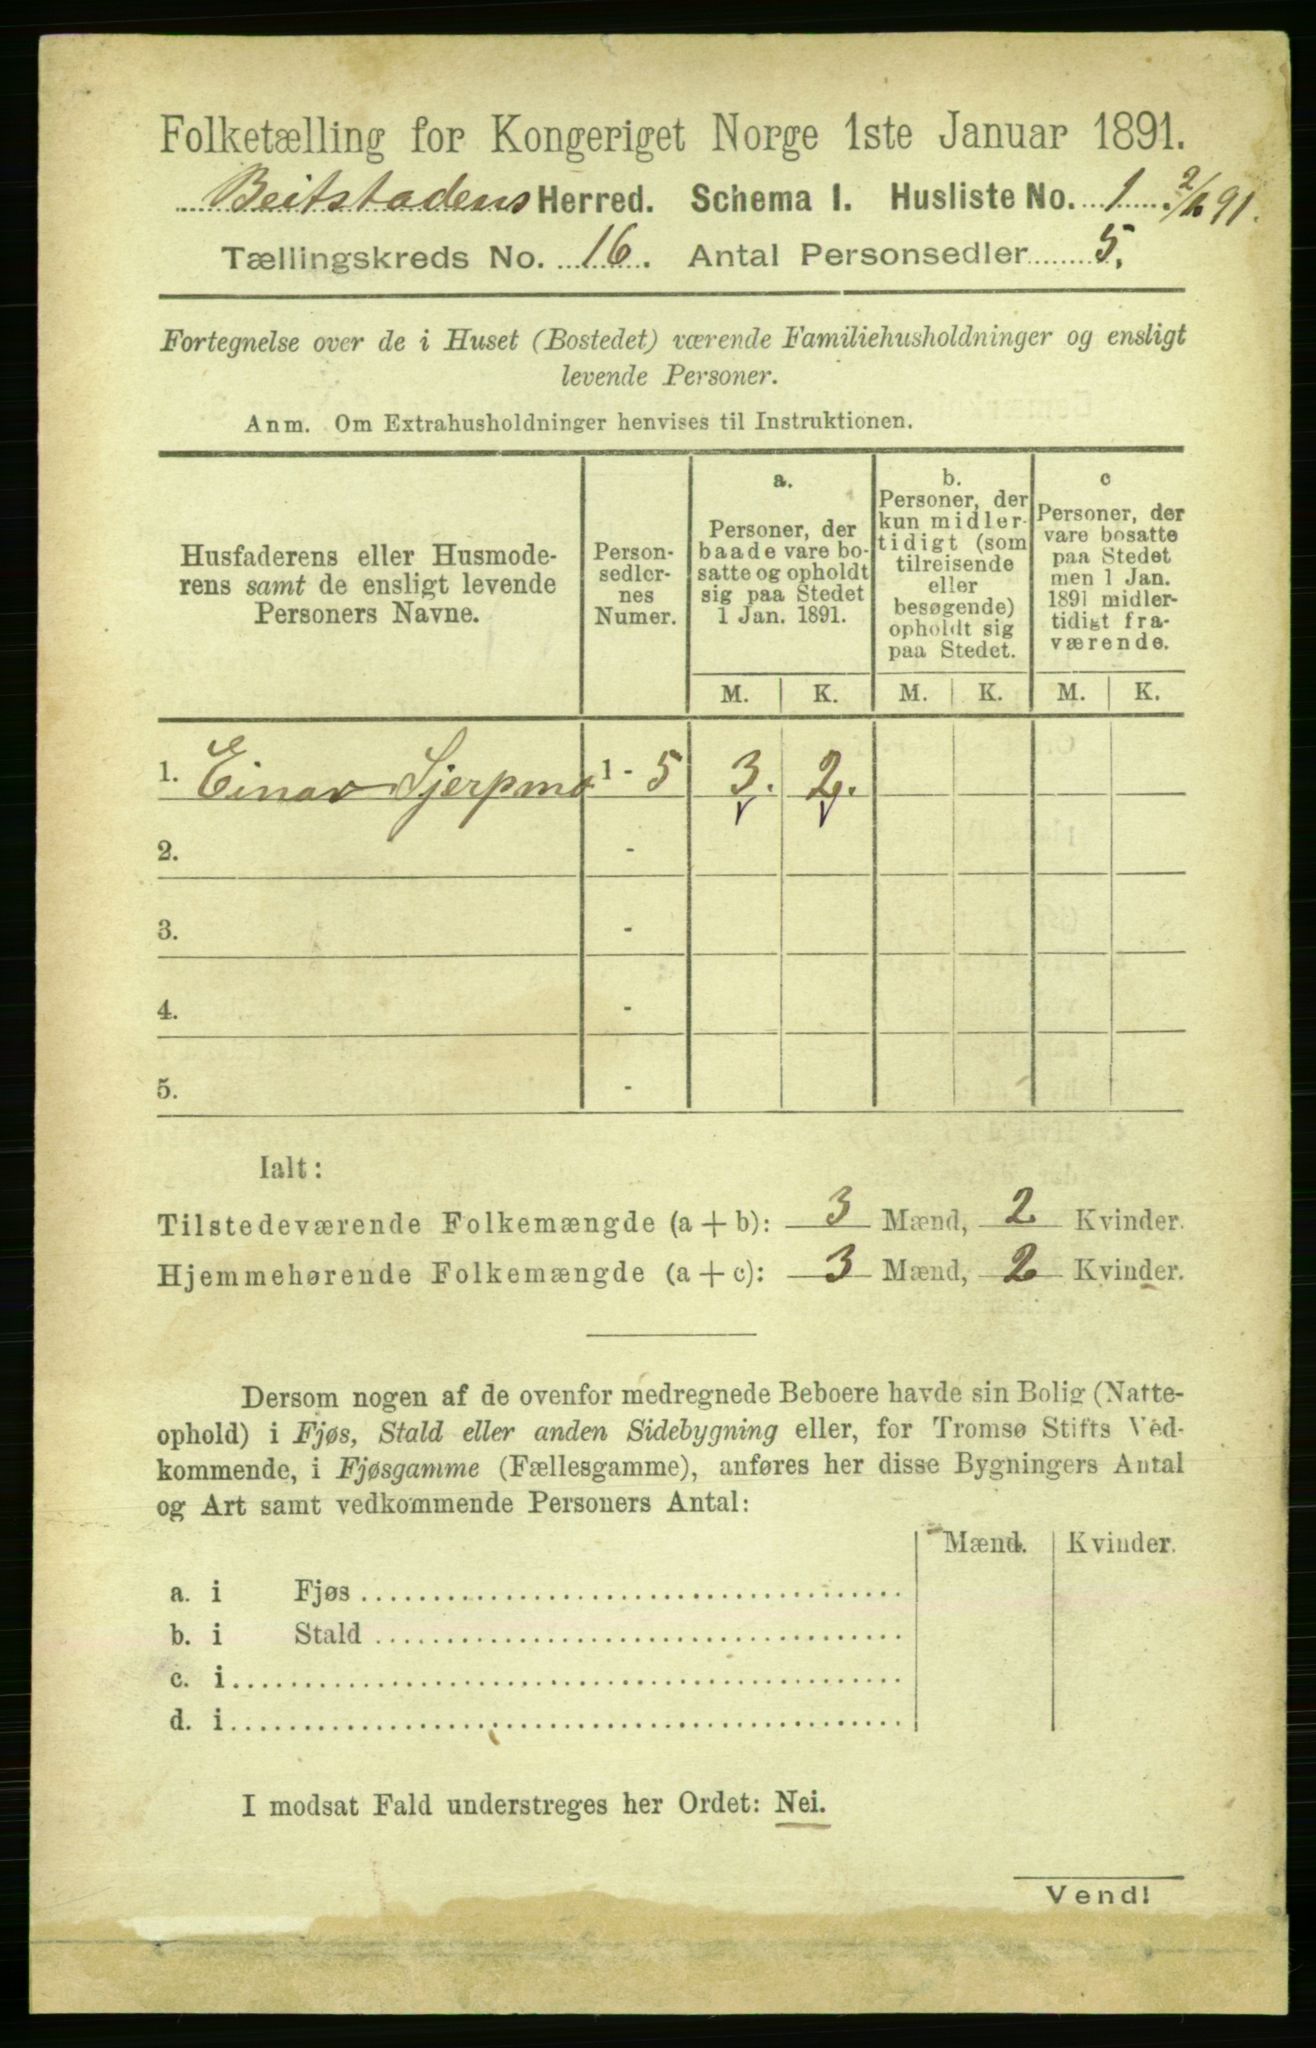 Folketælling for Kongeriget Norge 1ste Januar 1891.
Beitstadens Herred. Schema I. Husliste No. 1. 2/1 91.
Tællingskreds No. 16. Antal Personsedler 5.
Fortegnelse over de i Huset (Bostedet) værende Familiehusholdninger og ensligt
levende Personer.
Anm. Om Extrahusholdninger henvises til Instruktionen.
Husfaderens eller Husmode-
rens samt de ensligt levende
Personers Navne.
Person-
sedler-
nes
Numer.
a.
Personer, der
baade vare bo-
satte og opholdt
sig paa Stedet
1 Jan. 1891.
b.
Personer, der
kun midler-
tidigt (som
tilreisende
eller
besøgende)
opholdt sig
paa Stedet.
c
Personer, der
vare bosatte
paa Stedet
men 1 Jan.
1891 midler-
tidigt fra-
værende.
M. K. M. K. M. K.
1. Einar Sjerpmo 1 - 5 3. 2.
2. -
3. -
4. -
5. -
Ialt:
Tilstedeværende Folkemængde (a + b): 3 Mænd, 2 Kvinder.
Hjemmehørende Folkemængde (a + c): 3 Mænd, 2 Kvinder.
Dersom nogen af de ovenfor medregnede Beboere havde sin Bolig (Natte-
ophold) i Fjøs, Stald eller anden Sidebygning eller, for Tromsø Stifts Ved-
kommende, i Fjøsgamme (Fællesgamme), anføres her disse Bygningers Antal
og Art samt vedkommende Personers Antal:
Mænd. Kvinder.
a. i Fjøs
b. i Stald
c. i
d. i
I modsat Fald understreges her Ordet: Nei.
Vend!